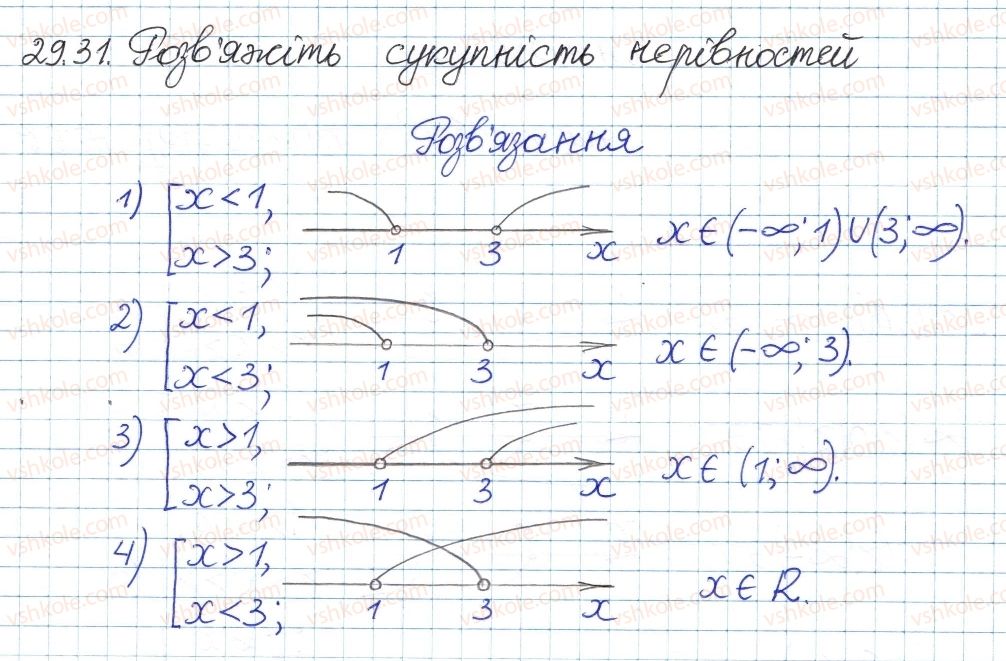 29.31. Розв'яжіть сукупність нерівностей
Розв'язання
1) [x < 1,
x > 3;
1 3 x
x ∈ (-∞; 1) ∪ (3; ∞).
2) [x < 1,
x < 3;
1 3 x
x ∈ (-∞; 3).
3) [x > 1,
x > 3;
1 3 x
x ∈ (1; ∞).
4) [x > 1,
x < 3;
1 3 x
x ∈ R.
vshkole.com